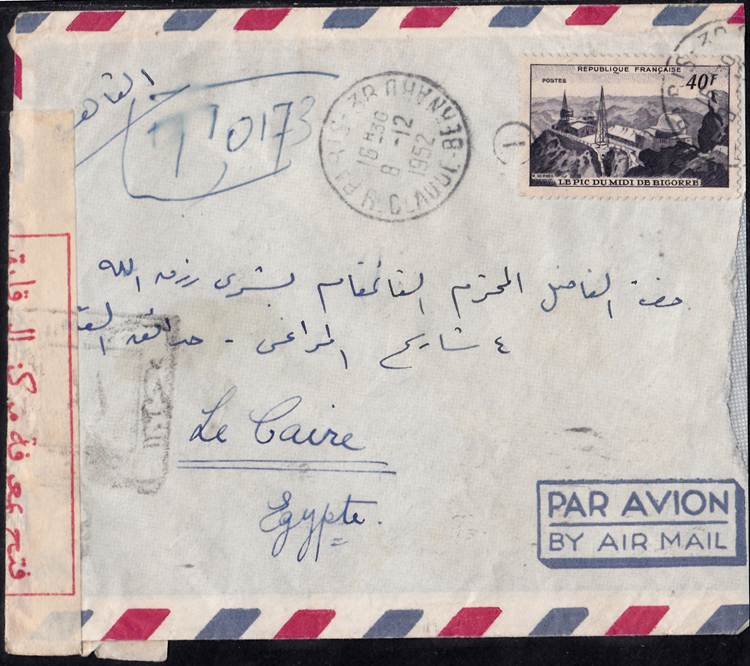 القاهرة
T 0173
PARIS - 38 R. CLAUDE BERNARD
16H30
8 -12
1952
RÉPUBLIQUE FRANÇAISE
POSTES
40F
LE PIC DU MIDI DE BIGORRE
1
حضرة الفاضل المحترم القائمقام بشرى رزق الله
٤ شارع المراغى - حدائق الق
Le Caire
Egypte.
فتح بمعرفة مركز الرقابة
PAR AVION
BY AIR MAIL